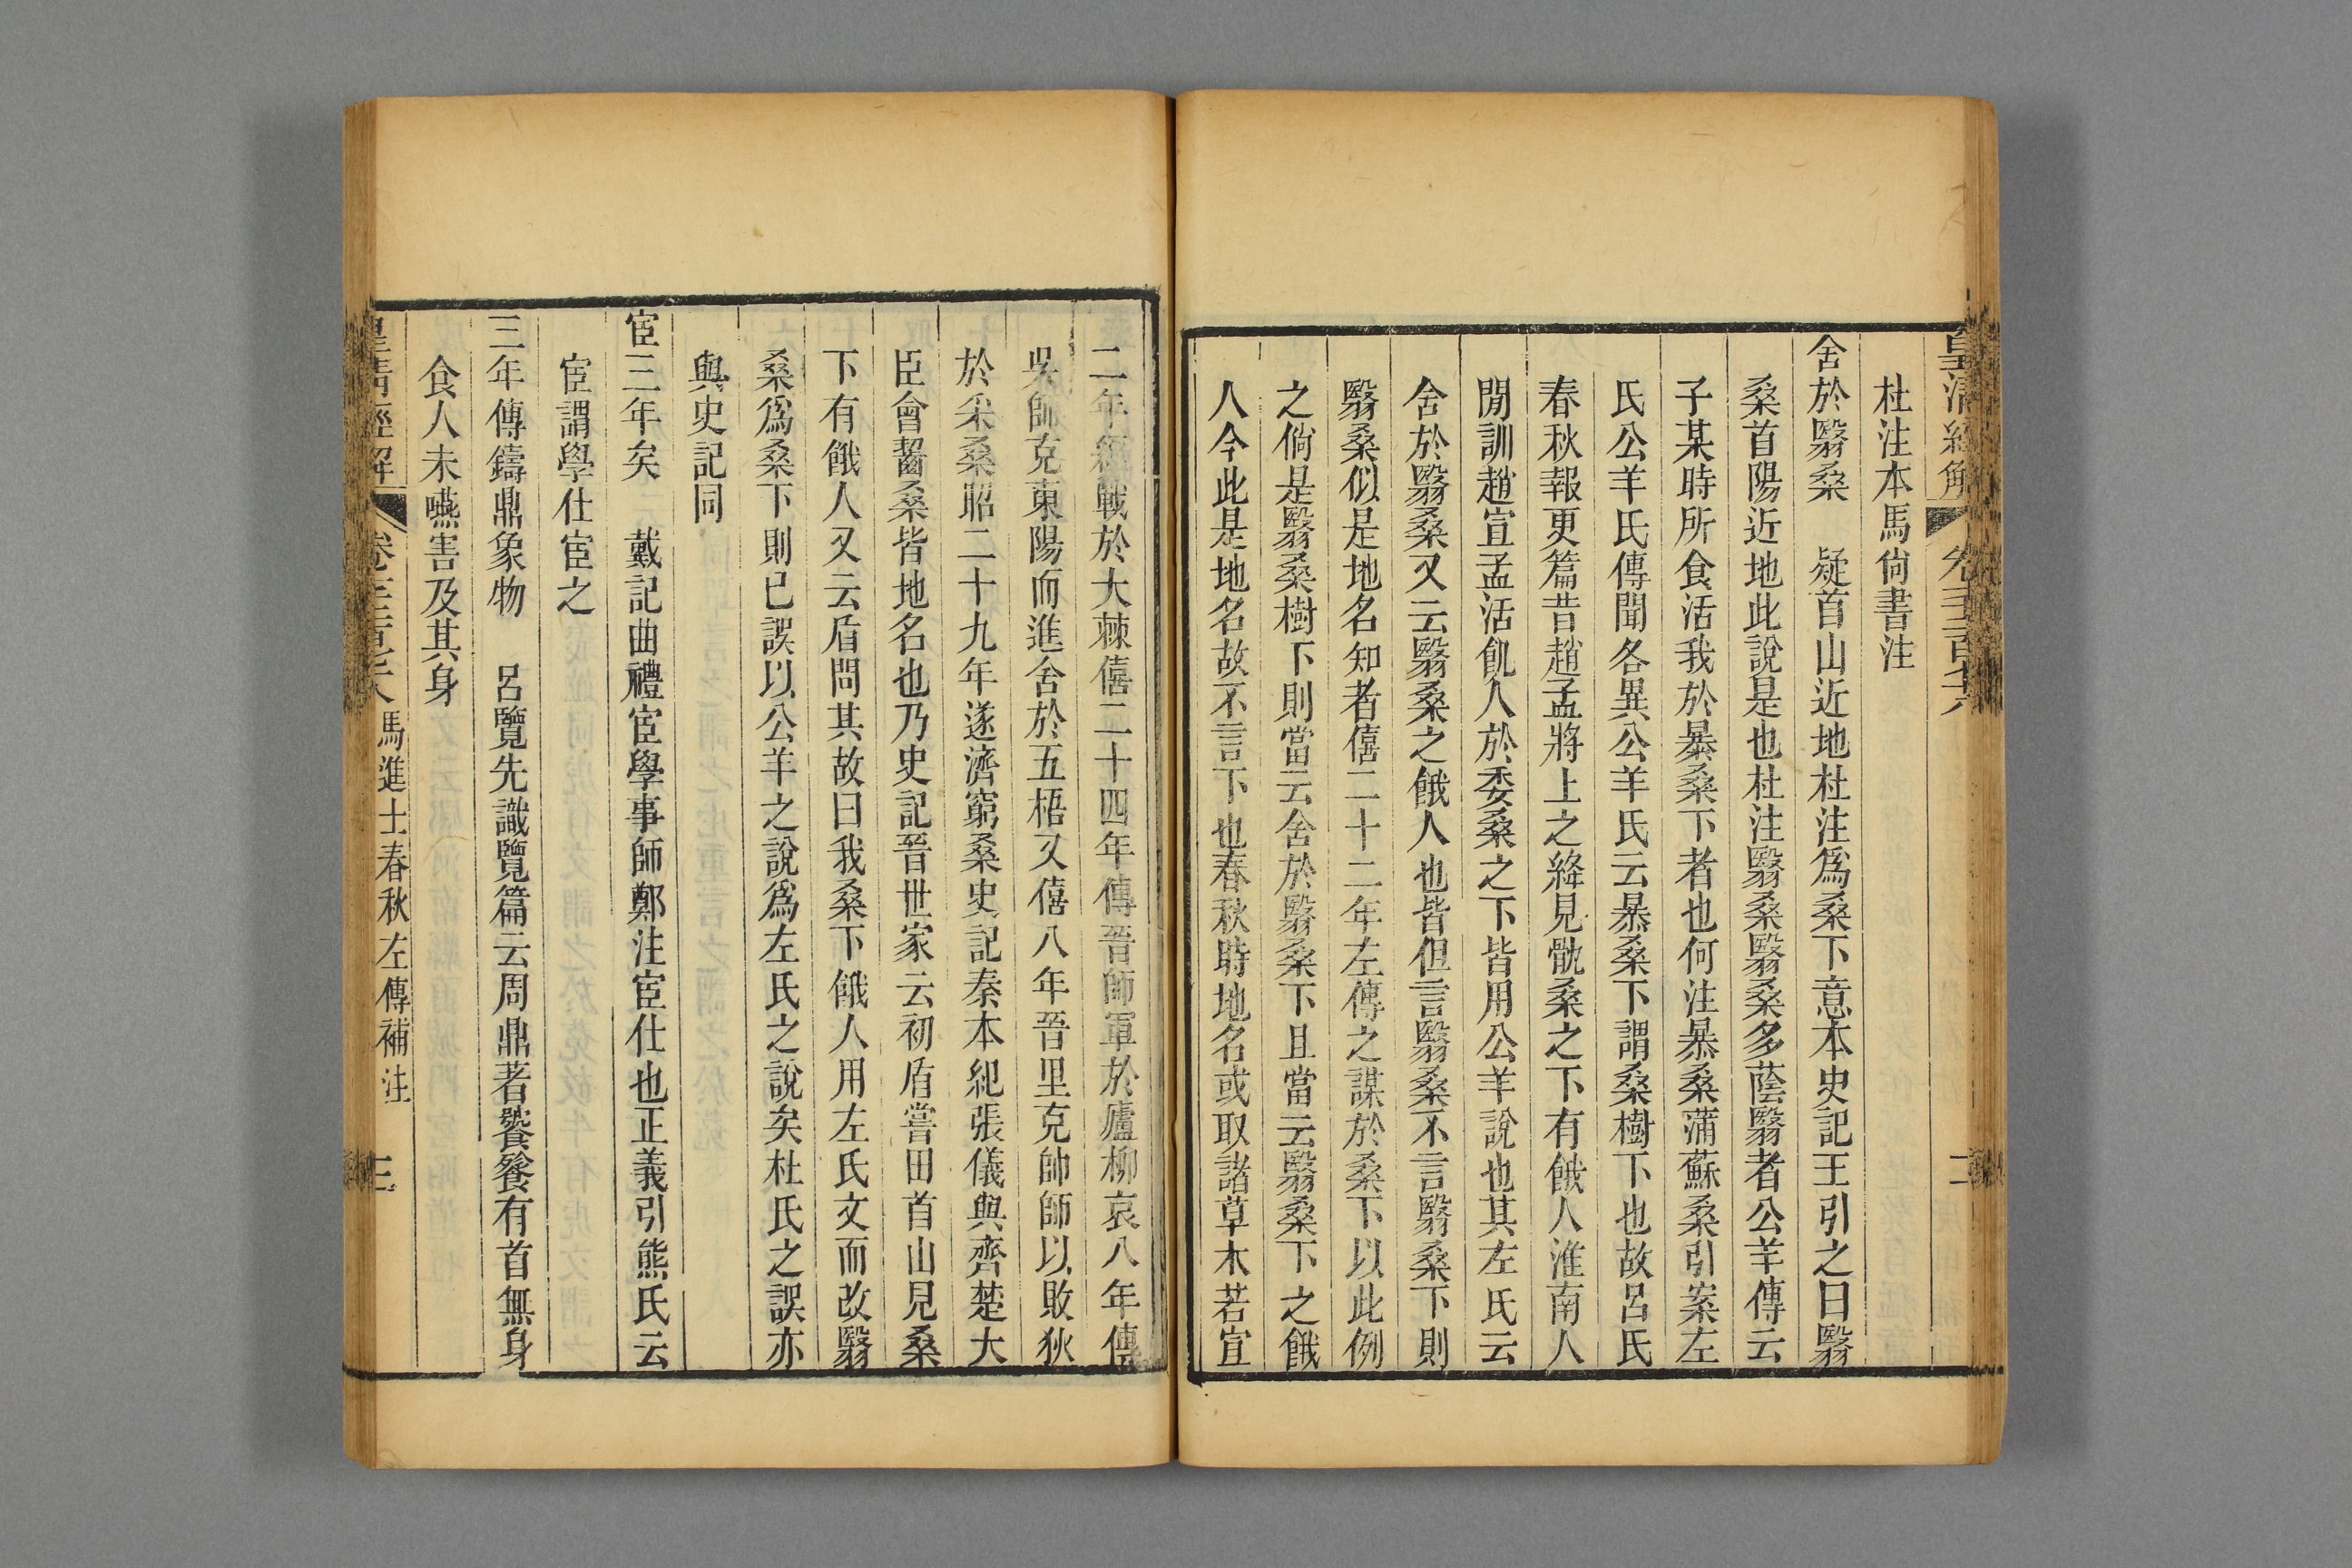 皇清經解
二
杜注本馬尙書注
舍於翳桑　疑首山近地杜注爲桑下意本史記王引之曰翳
桑首陽近地此說是也杜注翳桑翳桑多蔭翳者公羊傳云
子某時所食活我於暴桑下者也何注暴桑蒲蘇桑引案左
氏公羊氏傳聞各異公羊氏云暴桑下謂桑樹下也故呂氏
春秋報更篇昔趙孟將上之絳見骩桑之下有餓人淮南人
閒訓趙宣孟活飢人於委桑之下皆用公羊說也其左氏云
舍於翳桑又云翳桑之餓人也皆但言翳桑不言翳桑下則
翳桑似是地名知者僖二十二年左傳之謀於桑下以此例
之倘是翳桑樹下則當云舍於翳桑下且當云翳桑下之餓
人今此是地名故不言下也春秋時地名或取諸草木若宣
二年經戰於大棘僖二十四年傳晉師軍於廬柳哀八年傳
吳師克東陽而進舍於五梧又僖八年晉里克帥師以敗狄
於采桑昭二十九年遂濟窮桑史記秦本紀張儀與齊楚大
臣會齧桑皆地名也乃史記晉世家云初盾嘗田首山見桑
下有餓人又云盾問其故曰我桑下餓人用左氏文而改翳
桑爲桑下則已誤以公羊之說爲左氏之說矣杜氏之誤亦
與史記同
宦三年矣　戴記曲禮宦學事師鄭注宦仕也正義引熊氏云
宦謂學仕宦之
三年傳鑄鼎象物　呂覽先識覽篇云周鼎著饕餮有首無身
食人未嚥害及其身
皇清經解　馬進士春秋左傳補注　三